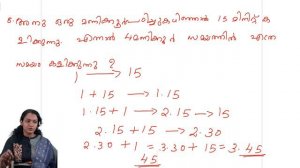 8. അനു ഒരു മണിക്കൂർ പഠിച്ചുകഴിഞ്ഞാൽ 15 മിനിറ്റ് ക
ളിക്കുന്നു. എന്നാൽ 4 മണിക്കൂർ സമയത്തിൽ എത്ര
സമയം കളിക്കുന്നു ?
1 → 15
1 + 15 → 1.15
1.15 + 1 → 2.15 → 15
2.15 + 15 → 2.30
2.30 + 1 = 3.30 + 15 = 3.45
45